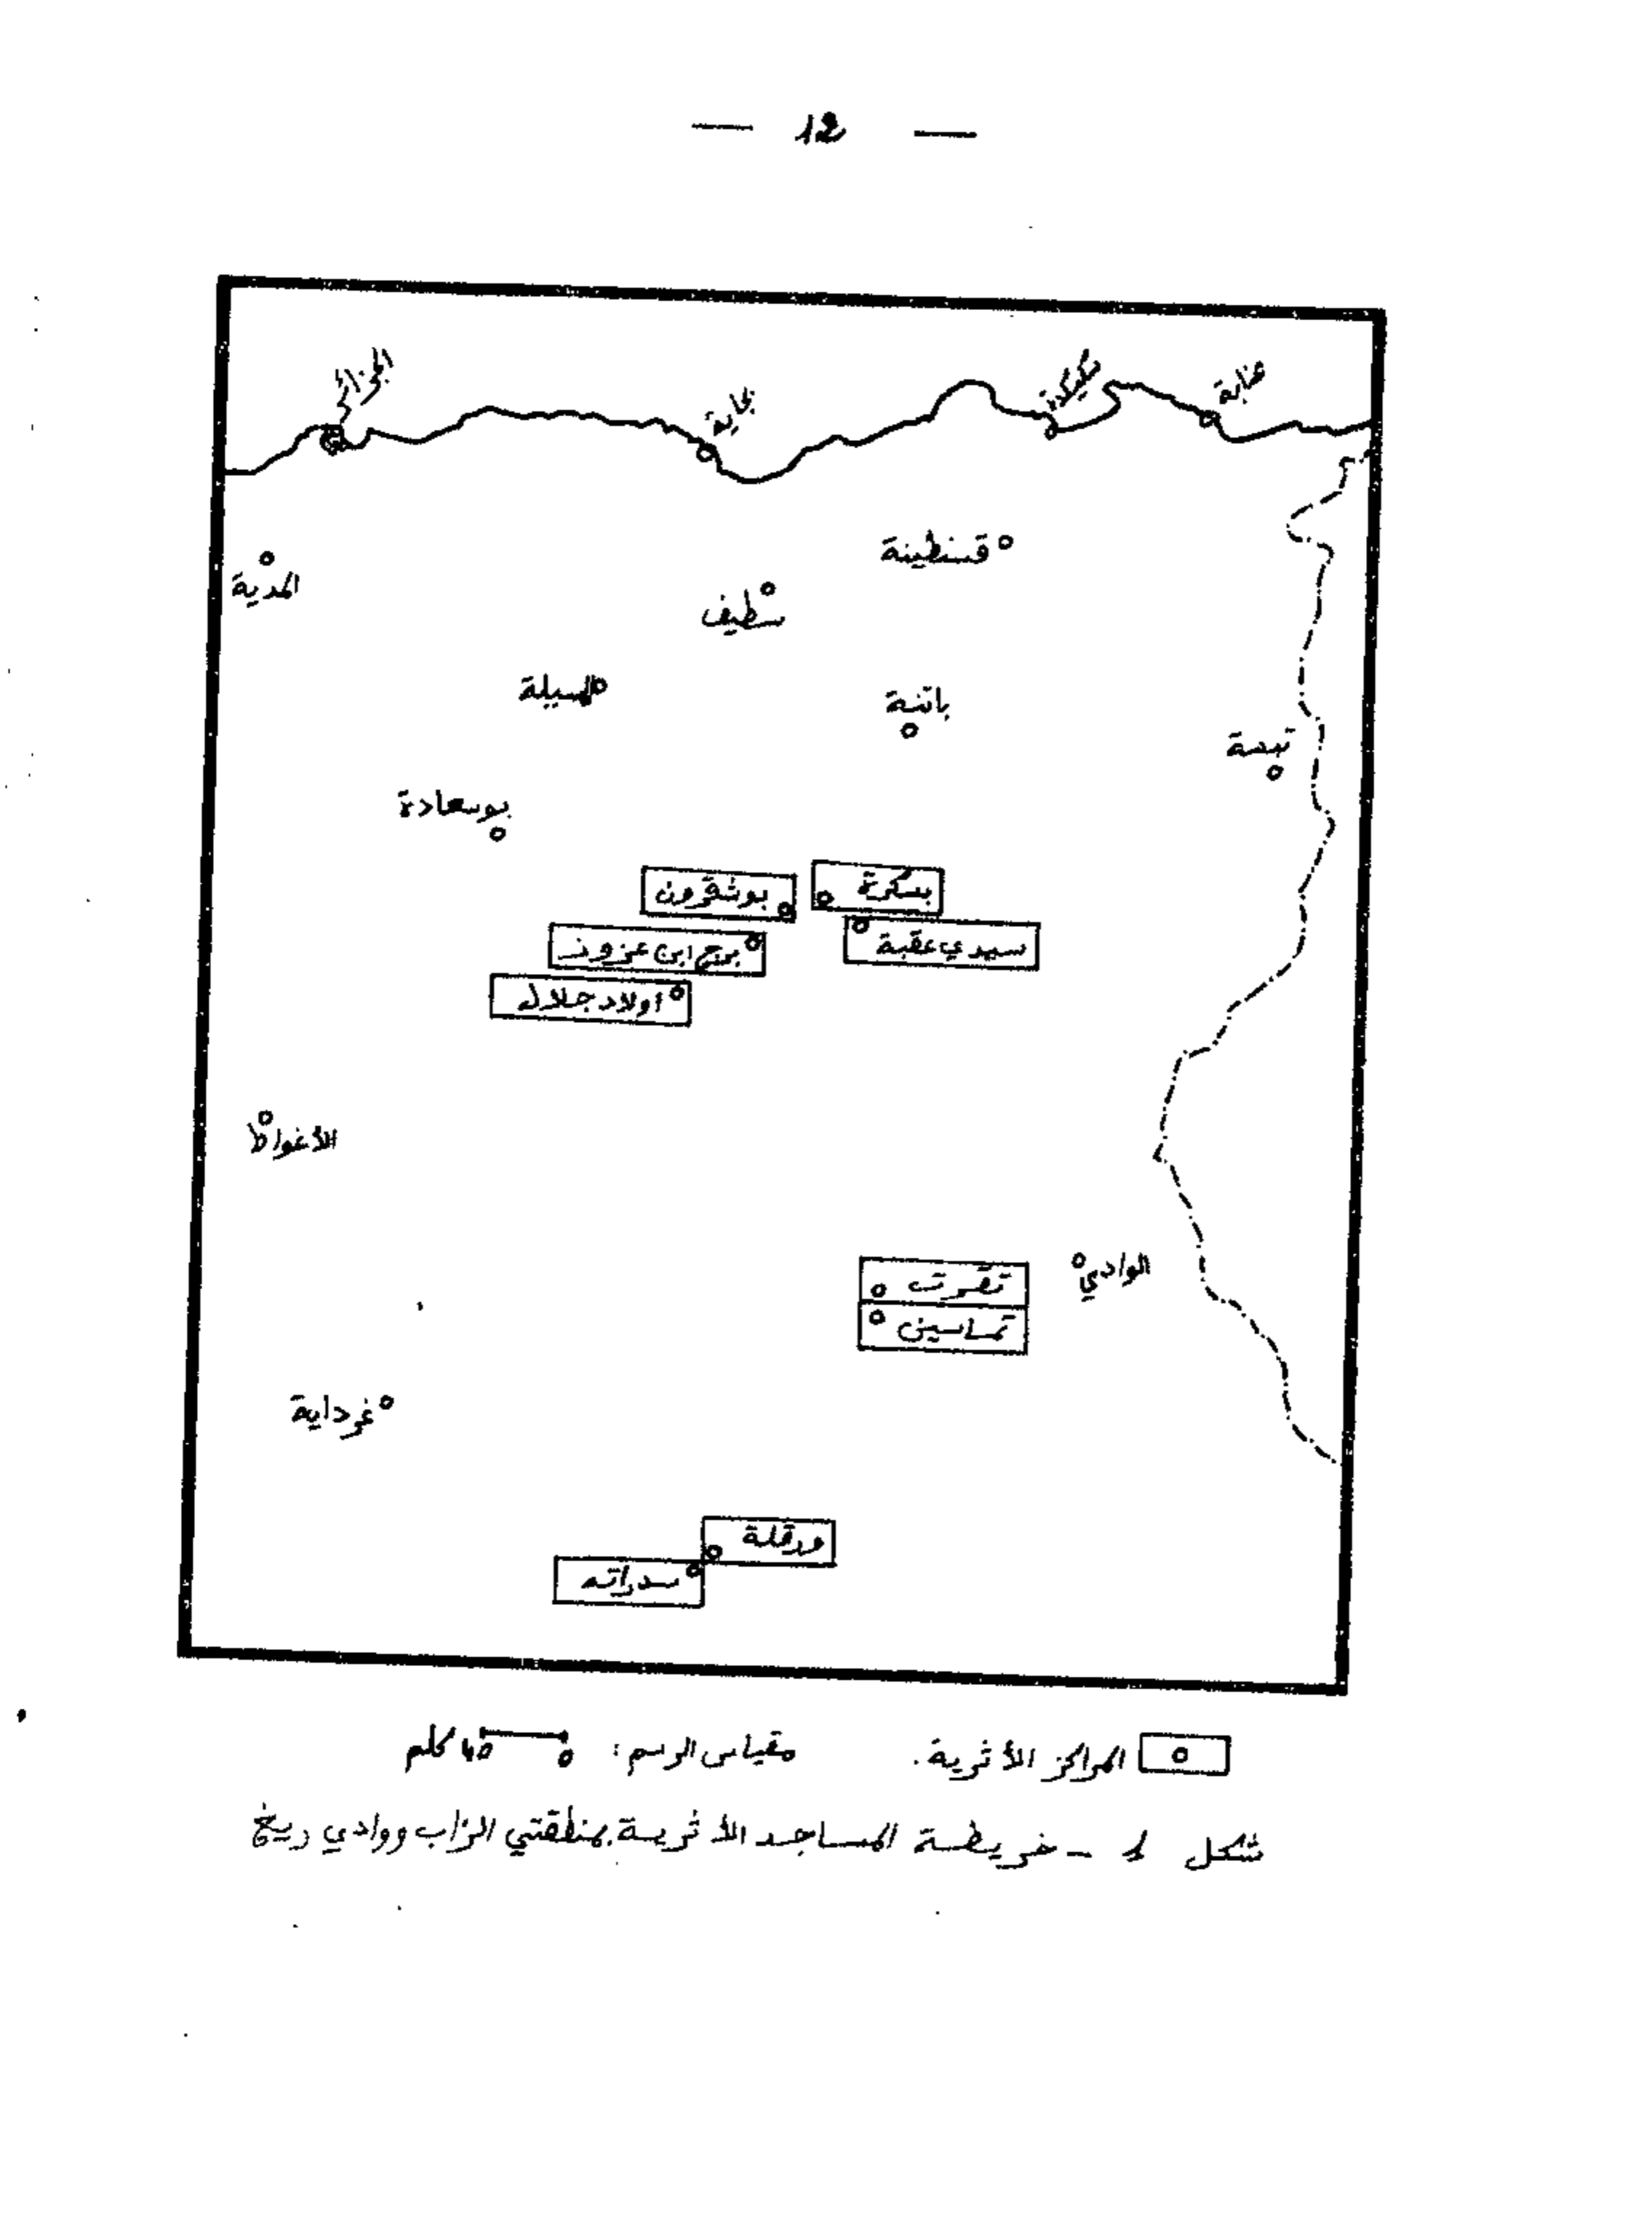 — 12 —
الجزائر
بجاية
سكيكدة
عنابة
قسنطينة
المدية
سطيف
المسيلة
باتنة
تبسة
بوسعادة
بسكرة
بوشقرون
سيدي عقبة
برج ابن عزوز
أولاد جلال
الأغواط
الوادي
تقرت
تماسين
غرداية
ورقلة
سدراته
المراكز الأثرية. مقياس الرسم: 0 كلم
شكل 1 - خريطة المساجد الأثرية بمنطقتي الزاب ووادي ريغ